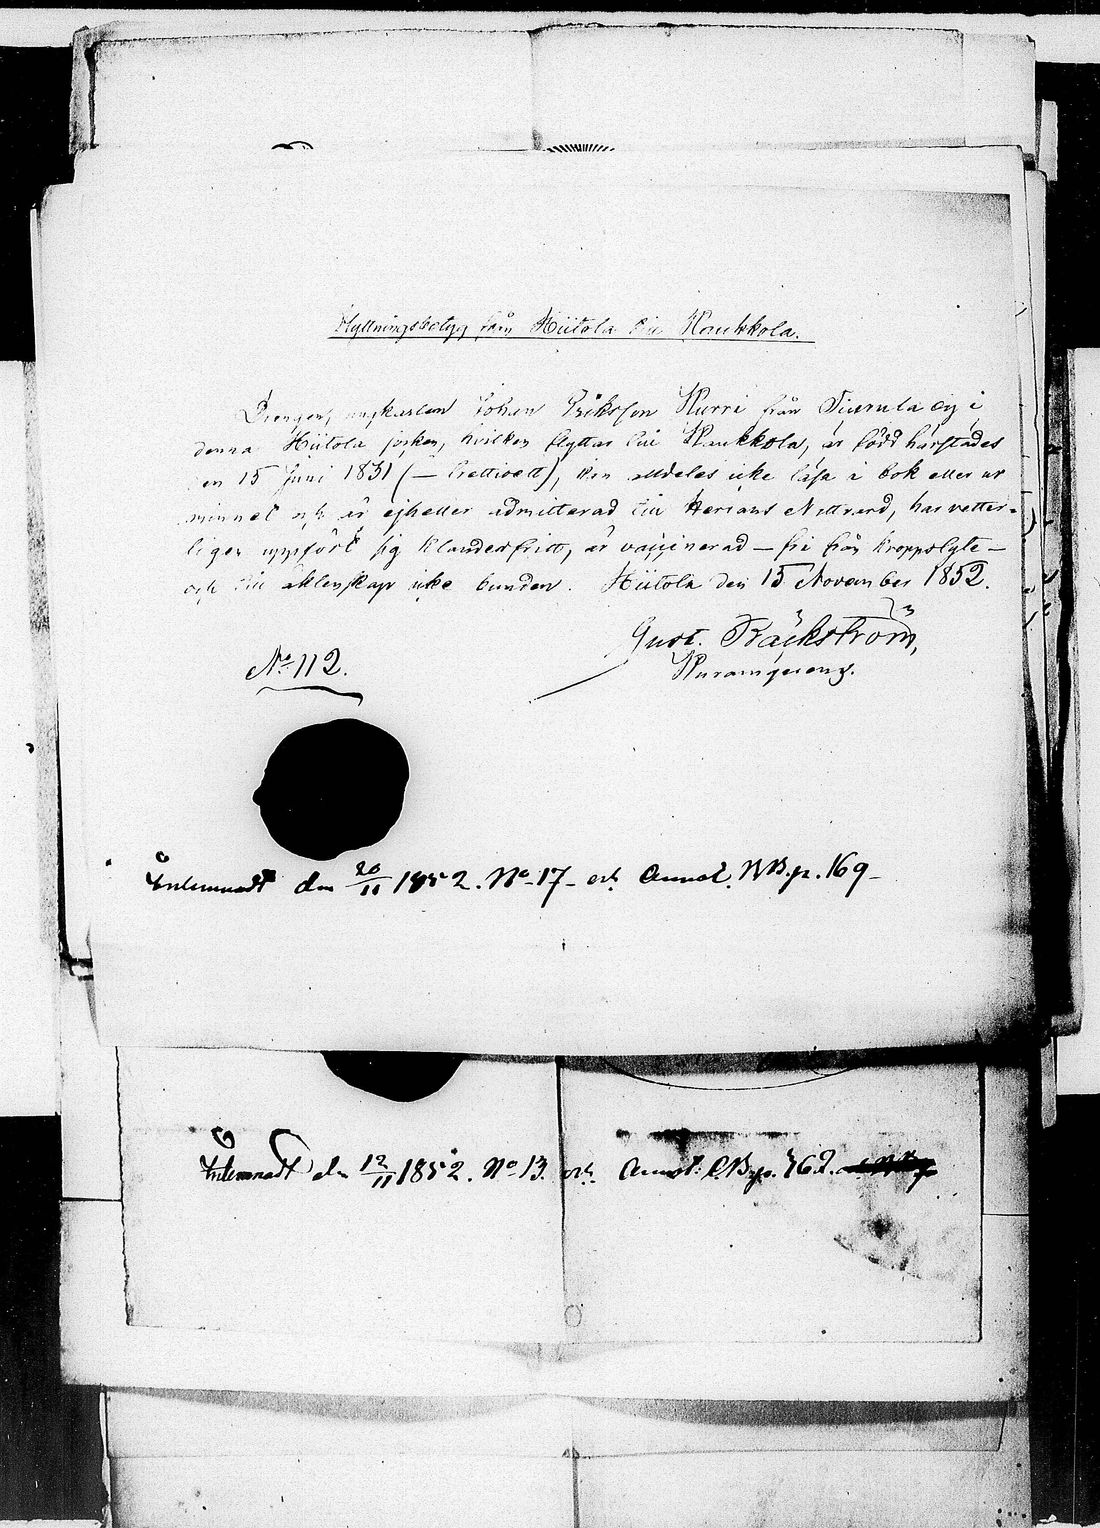 Flyttningsbetyg från Hiitola till Kaukkola.
Drengen, ungkarlen Johan Eriksson Hurri från Tiurula by i
denna Hiitola socken, hvilken flyttar till Kaukkola, är född härstädes
den 15 Juni 1831 (— trettioett), kan alldeles icke läsa i bok eller ur
minnet och är ejheller admitterad till Herrans Nattvard, har vetter-
ligen uppfört sig klanderfritt, är vaccinerad — fri från kroppslyte —
och till äktenskap icke bunden. Hiitola den 15 November 1852.
Gust. Bäckström,
No 112.
Inlemnadt den 20/11 1852. No 17 — och Annot. NB. p. 169 —
Inlemnadt den 12/11 1852. No 13. och Annot. CB. p. 762.